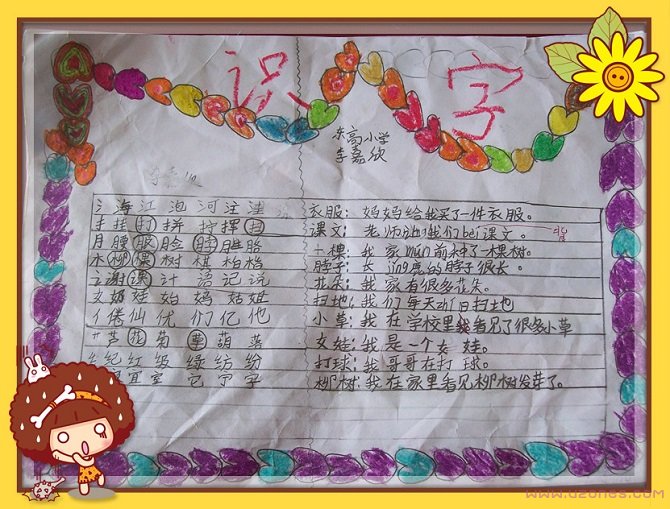 识字
东高小学
李嘉欣
氵海江泡河注洼
扌挂打拼拧挥扫
月腫服脸脖胜胳
木柳棵树棋柏档
讠谢课计话记说
女奶娃始妈姑姓
亻倦仙优们亿他
艹芦花菊草葫落
纟纪红级绿纺纷
宜室它字字
衣服：妈妈给我买了一件衣服。
课文：老师让我们bèi课文。
一棵：我家mén前种了一棵树。
脖子：长jǐng鹿的脖子很长。
花朵：我家有很多花朵。
扫地：我们每天打扫地
小草：我在学校里我看见了很多小草
女娃：我是一个女娃。
打球：我哥哥在打球。
柳树：我在家里看见柳树发芽了。